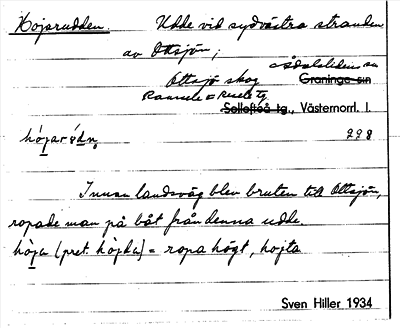 Hojarudden. Udde vid sydvästra stranden
av Ottsjön;
Ådalslidens sn
Ottsjö skog Graninge sn
Ramsele o Resele tg.
Sollefteå tg., Västernorrl. l.
hòjarúdn 298
Innan landsväg blev bruten till Ottsjön,
ropade man på båt från denna udde.
hòja (pret. hòjda) = ropa högt, hojta
Sven Hiller 1934